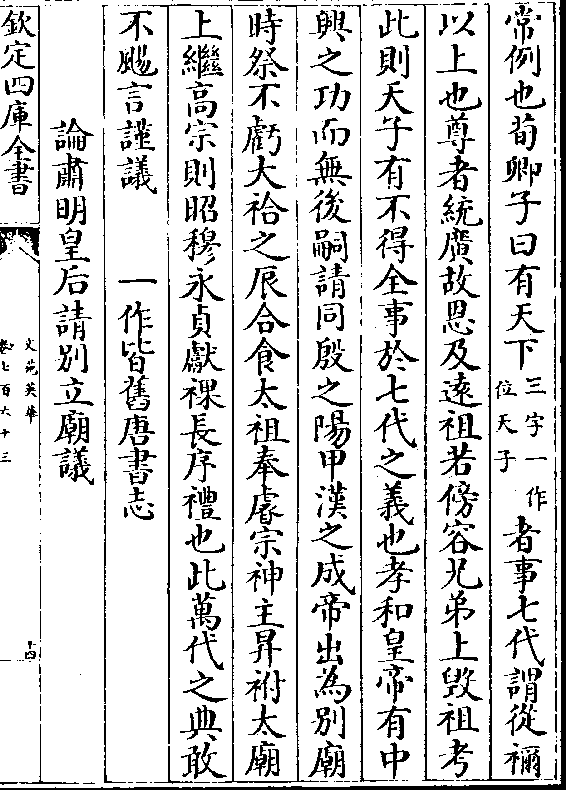 常例也荀卿子曰有天下三字一作位天子者事七代謂從禰
以上也尊者統廣故恩及遠祖若傍容兄弟上毀祖考
此則天子有不得全事於七代之義也孝和皇帝有中
興之功而無後嗣請同殷之陽甲漢之成帝出為別廟
時祭不虧大祫之辰合食太祖奉睿宗神主昇祔太廟
上繼高宗則昭穆永貞獻祼長序禮也此萬代之典敢
不颺言謹議 一作皆舊唐書志
論肅明皇后請別立廟議
欽定四庫全書
文苑英華
卷七百六十三
十四